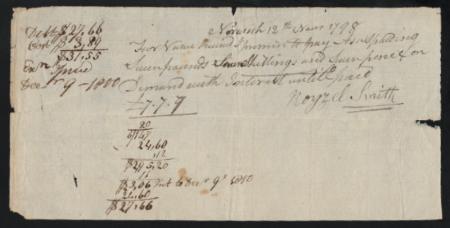 Debt $27,66
Cost $ 3,89
$31,55
Exn
Decr 9 - 1800
Norwich 12th Novr 1798
For Value Recieved I promise to pay Asa Spalding
Seven pounds Seven Shillings and Seven pence on
Demand with Interest until paid
Royzel Smith
£7 - 7 - 7
20
6/147
24,60
12
$295,20
$3,06 Int to Decr 9th 1800
24,60
$27,66